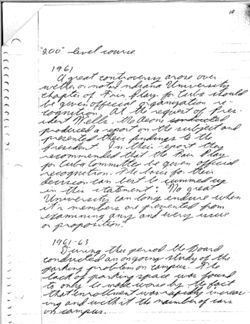 "200" level course.
1961
A great controversy arose over
whether or not Indiana University
Chapter of Fair Play for Cuba should
be given official organization re-
cognition. At the request of Pres-
ident Wells the Deans conducted
produced a report on the subject and
presented their findings to the
President. In their report they
recommended that the Fair Play
for Cuba Committee be given official
recognition. The basis for their
decision can best be summed up
in this statement: "No great
University can long endure when
its members are prevented from
examining any and every issue
or proposition."
1961-63
During this period the Board
conducted an ongoing study of the
parking problem on campus. The
lack of parking space was found
to only be made worse by the fact
that enrollment was rapidly increas-
ing and with it the number of cars
on campus.